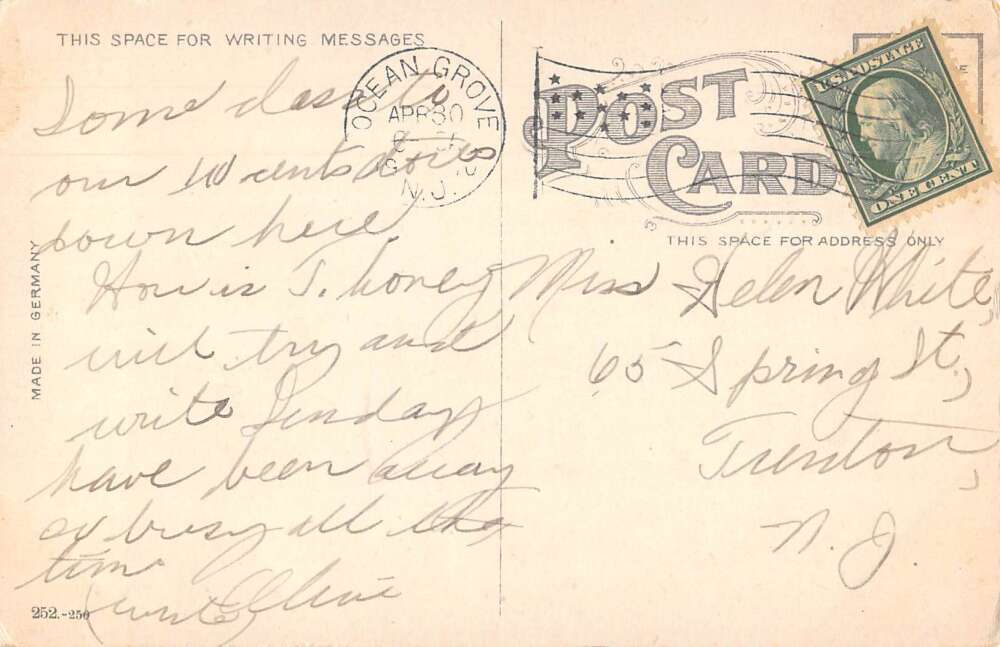 THIS SPACE FOR WRITING MESSAGES
Some class to
our 10 cents
down here
How is J. honey
will try and
write Sunday
have been away
or busy all the
time
(write) Olive
MADE IN GERMANY
252.-250
OCEAN GROVE
APR 30
N.J.
POST
CARD
U.S. POSTAGE
ONE CENT
THIS SPACE FOR ADDRESS ONLY
Miss Helen White,
65 Spring St.,
Trenton,
N. J.